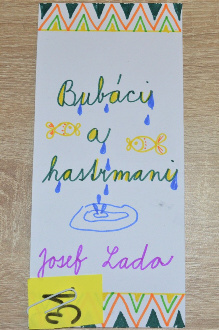 Bubáci
a
hastrmani
Josef Lada
31